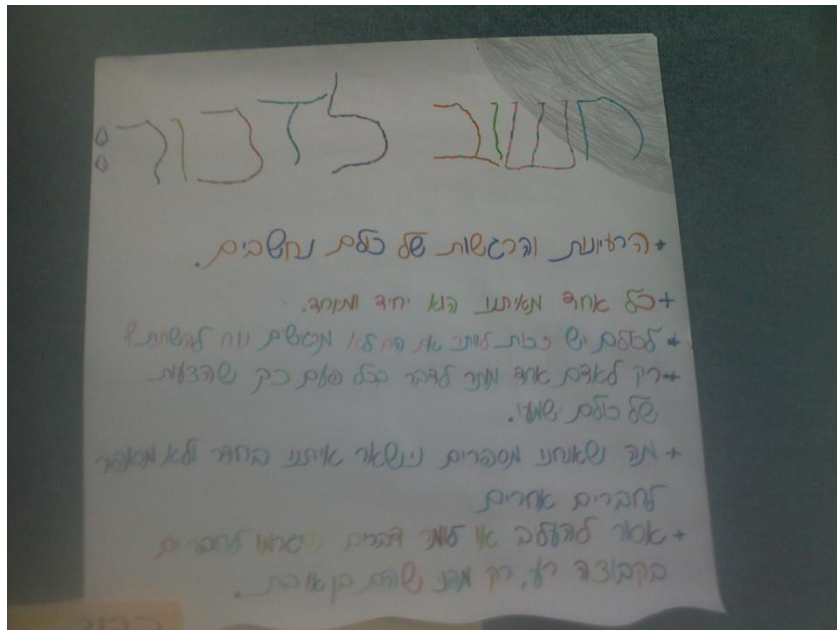 חשוב לדבור:
+ הרעיונות והרגשות של כולם נחשבים.
+ כל אחד מאיתנו הוא יחיד ומיוחד.
+ לכולם יש זכות לוותר אם הם לא מרגישים נוח להשתתף
+ רק לאדם אחד מותר לדבר בכל פעם כך שהדעות
של כולם ישמעו.
+ מה שאנחנו מספרים נישאר איתנו בחדר ולא מסופר
לחברים אחרים
+ אסור להעליב או לומר דברים שיגרמו לחברים
בקבוצה רע, רק מפני שהם בן או בת.